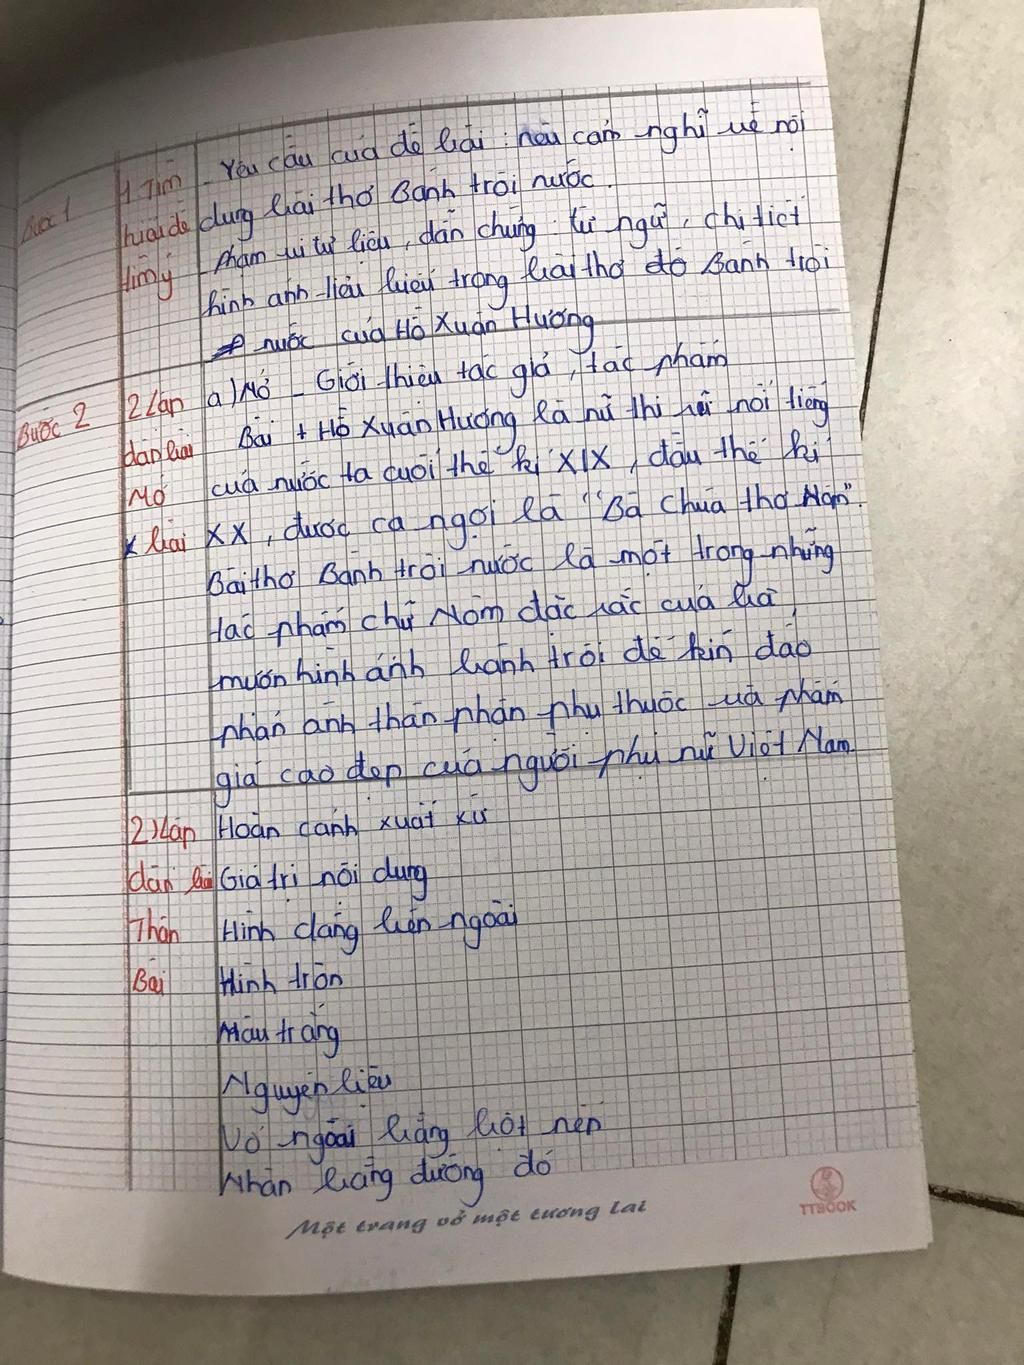 Bước 1
1 Tìm
hiểu đề
tìm ý
- Yêu cầu của đề bài: nêu cảm nghĩ về nội
dung bài thơ Bánh trôi nước.
- Phạm vi tư liệu, dẫn chứng: từ ngữ, chi tiết
hình ảnh tiêu biểu trong bài thơ đó Bánh trôi
nước của Hồ Xuân Hương
Bước 2
2 Lập
dàn bài
Mở
bài
a) Mở - Giới thiệu tác giả, tác phẩm
Bài + Hồ Xuân Hương là nữ thi sĩ nổi tiếng
của nước ta cuối thế kỉ XIX, đầu thế kỉ
XX, được ca ngợi là "Bà Chúa thơ Nôm".
Bài thơ Bánh trôi nước là một trong những
tác phẩm chữ Nôm đặc sắc của bà,
mượn hình ảnh bánh trôi để kín đáo
phản ánh thân phận phụ thuộc và phẩm
giá cao đẹp của người phụ nữ Việt Nam.
2) Lập
dàn bài
Thân
Bài
Hoàn cảnh xuất xứ
Giá trị nội dung
Hình dáng bên ngoài
Hình tròn
Màu trắng
Nguyên liệu
Vỏ ngoài bằng bột nếp
Nhân bằng đường đỏ
Một trang vở một tương lai
TTBOOK